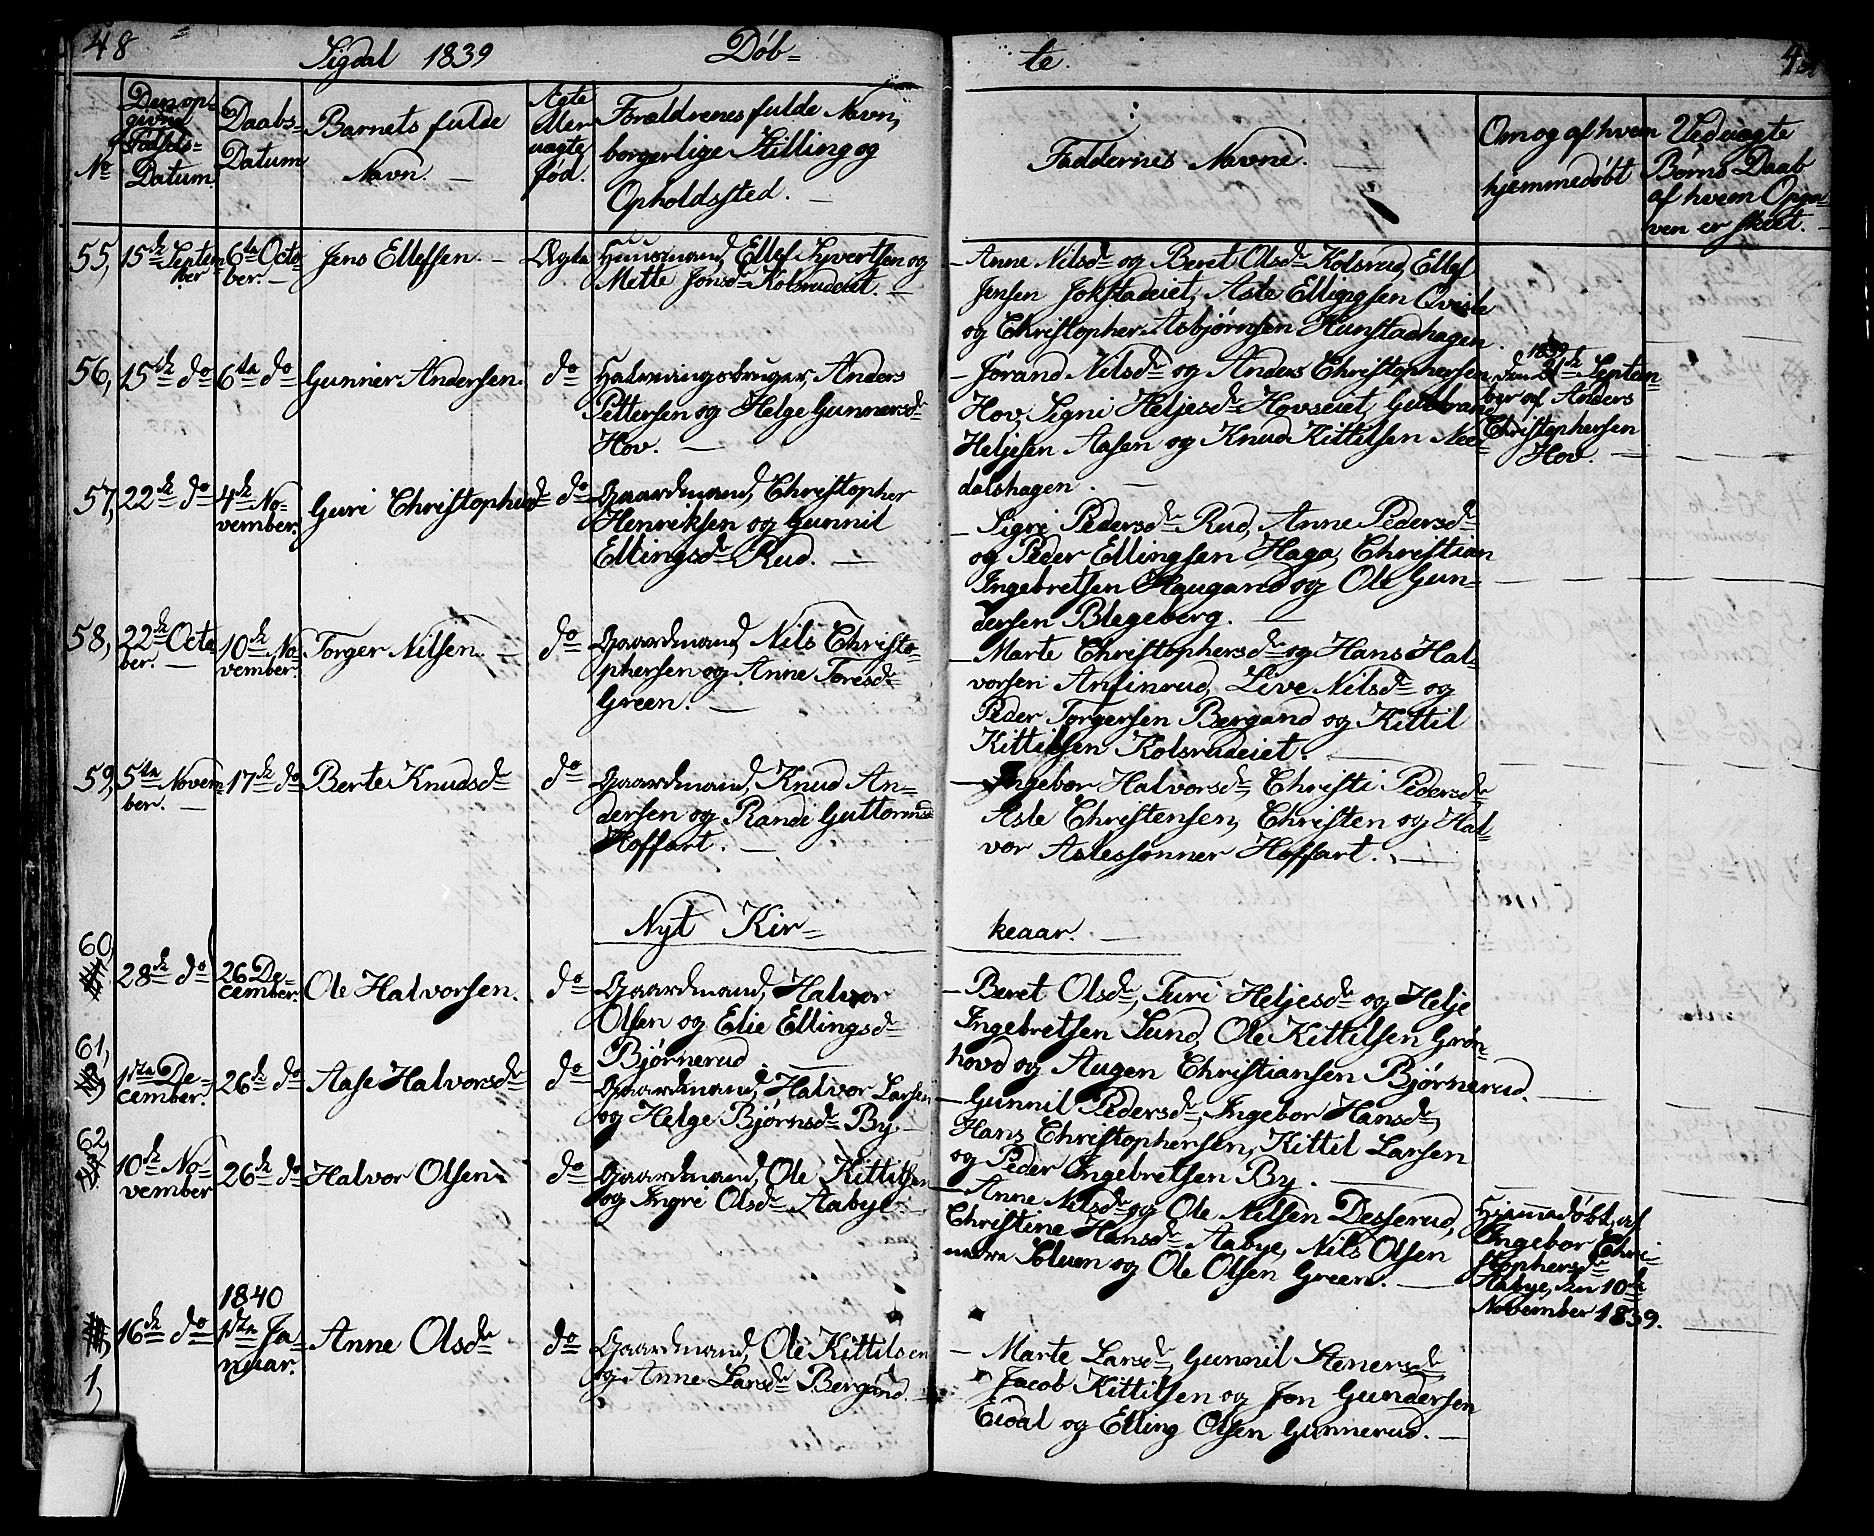 48 Sigdal 1839 Døb=
te.
No
Den op=
givne
Fødsels=
Datum.
Daabs=
Datum
Barnets fulde
Navn. —
Ægte
eller
uægte
fød.
Forældrenes fulde Navn,
borgerlige Stilling og
Opholdssted. —
Faddernes Navne. —
Om og af hvem
hjemmedøbt
Ved uægte
Børns Daab
af hvem Opgi=
ven er skeet. —
55, 15de Septem
ber
6te Octo
ber. —
Jens Ellefsen. —
Ægte
Huusmand, Ellef Syvertsen og
Mette Jonsdr Kolsrudeiet. —
— Anne Nilsdr og Beret Olsdr Kolsrud, Ellef
Jensen Jokstadeiet, Aste Ellingsen Qvisle
og Christopher Asbjørnsen Hunstadhagen.
56, 15de do 6te do Gunner Andersen. do
Halvningsbruger, Anders
Pettersen og Helge Gunnersdr
Hov. —
— Jørand Nilsdr og Anders Christophersen
Hov, Signi Heljesdr Hovseiet, Gulbrand
Heljesen Aasen og Knud Kittilsen Nee=
dalshagen. —
1839
den 21de Septem=
ber af Anders
Christophersen
Hov. —
57, 22de do
4de No=
vember.
Guri Christophersdr do
Gaardmand, Christopher
Henriksen og Gunnil
Ellingsdr Rud. —
— Sigri Pedersdr Rud, Anne Pedersdr
og Peder Ellingsen Haga, Christian
Ingebretsen Haugand og Ole Gun=
dersen Blegeberg. —
58, 22de Octo
ber. —
10de No
vember.
Torger Nilsen. — do
Gaardmand, Nils Christo=
phersen og Anne Toresdr
Green. —
— Marte Christophersdr og Hans Hal=
vorsen Anfinrud, Live Nilsdr og
Peder Torgersen Bergand og Kittil
Kittilsen Kolsrudeiet. —
59, 5te Novem
ber. —
17de do Berte Knudsdr do
Gaardmand, Knud An=
dersen og Randi Guttormsd
Hoffart. —
— Ingebor Halvorsdr, Christi Pedersdr,
Asle Christensen, Christen og Hal=
vor Aslessønner Hoffart. —
Nyt Kir=
keaar. —
60,
28de do
26 De=
cember.
Ole Halvorsen. do
Gaardmand, Halvor
Olsen og Elie Ellingsdr
Bjørnerud —
— Beret Olsdr, Turi Heljesdr og Helje
Ingebretsen Lund, Ole Kittilsen Grøn=
hovd og Augen Christiansen Bjørnerud.
61,
1ste De=
cember.
26de do Aase Halvorsdr do
Gaardmand, Halvor Larsen
og Helge Bjørnsdr By. —
— Gunnil Pedersdr, Ingebor Hansdr,
Hans Christophersen, Kittil Larsen
og Peder Ingebretsen By. —
62,
10de No=
vember
26de do Halvor Olsen do
Gaardmand, Ole Kittilsen
og Ingri Olsdr Aabye —
— Anne Nilsdr og Ole Nilsen Desserud,
Christine Hansdr Aabye, Nils Olsen
nedre Solum og Ole Olsen Green. —
Hjemmedøbt af
Ingebor Chri=
stophersdr
Aabye, den 10de
November 1839.
16de do
1840
1ste Ja=
nuar.
1,
Anne Olsdr do
Gaardmand, Ole Kittilsen
og Anne Larsdr Bergand. —
— Marte Larsdr, Gunnil Stenersdr,
Jacob Kittilsen og Jon Gundersen
Eidal og Elling Olsen Gunnerud. —